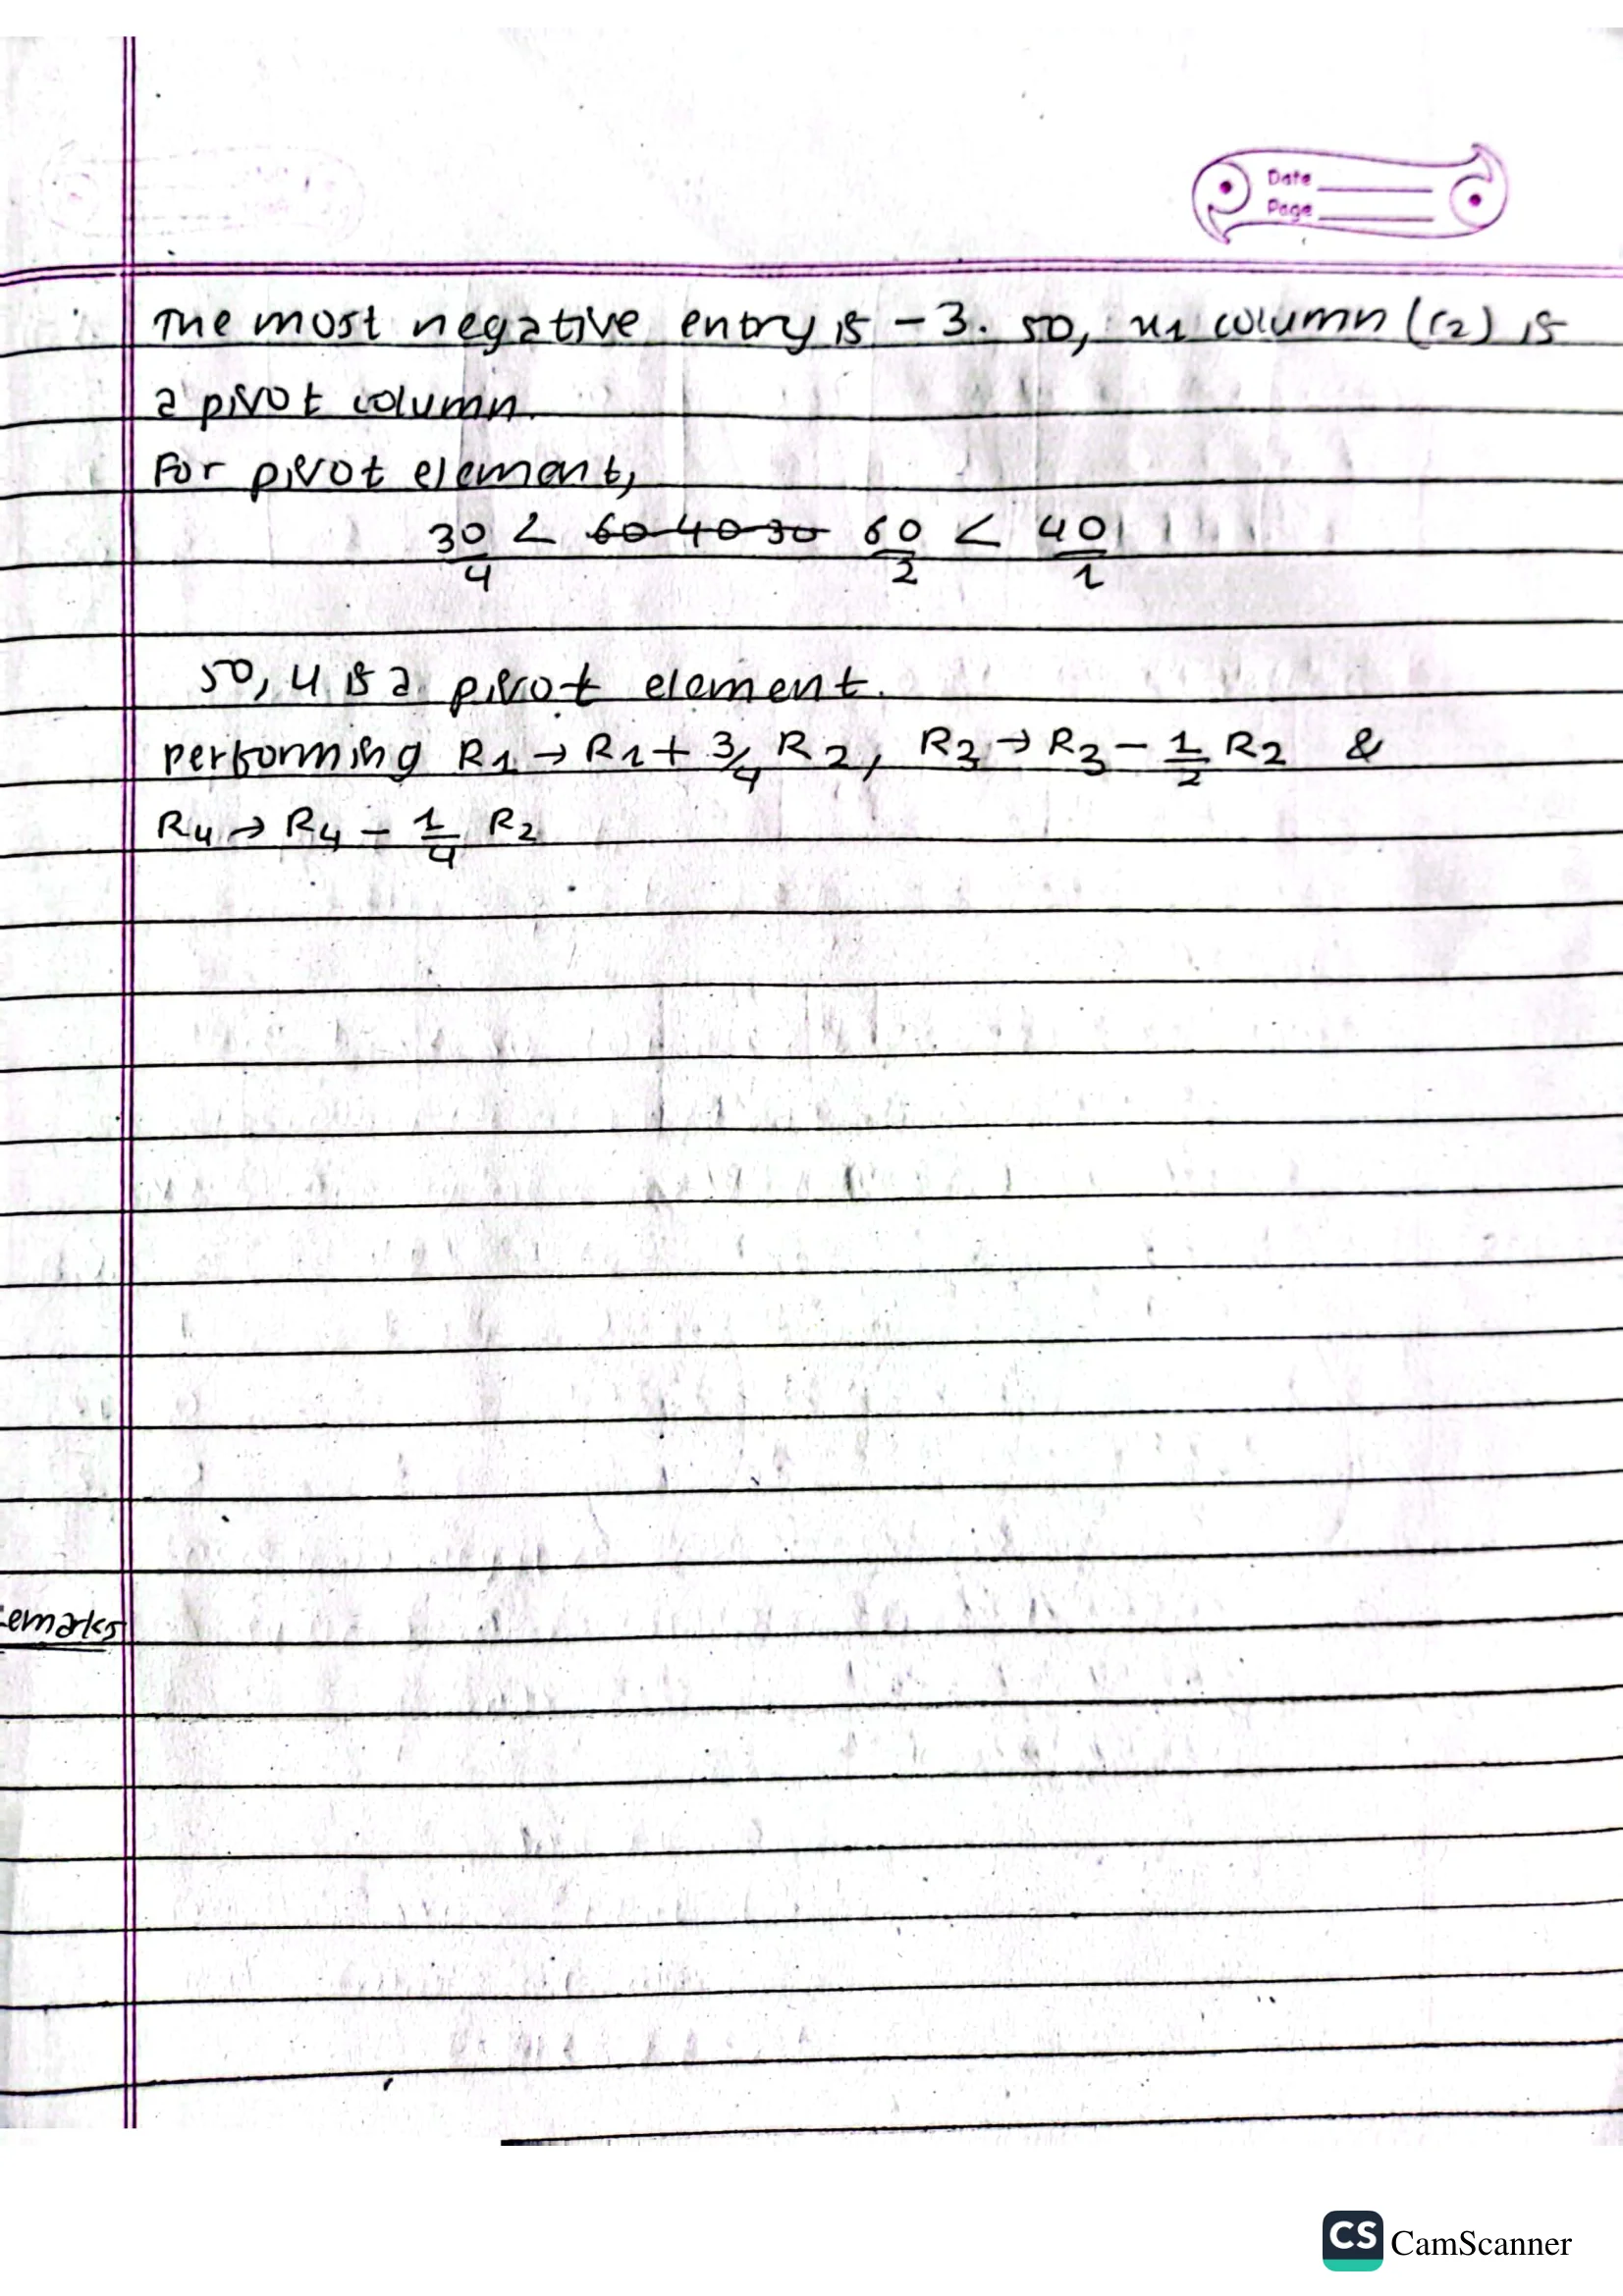 Date
Page
The most negative entry is -3. so, x1 column (c2) is
a pivot column.
For pivot element,
30/4 < 60 40 30 60/2 < 40/1
so, 4 is a pivot element.
performing R1 → R1 + 3/4 R2, R3 → R3 - 1/2 R2 &
R4 → R4 - 1/4 R2
emarks
CS CamScanner